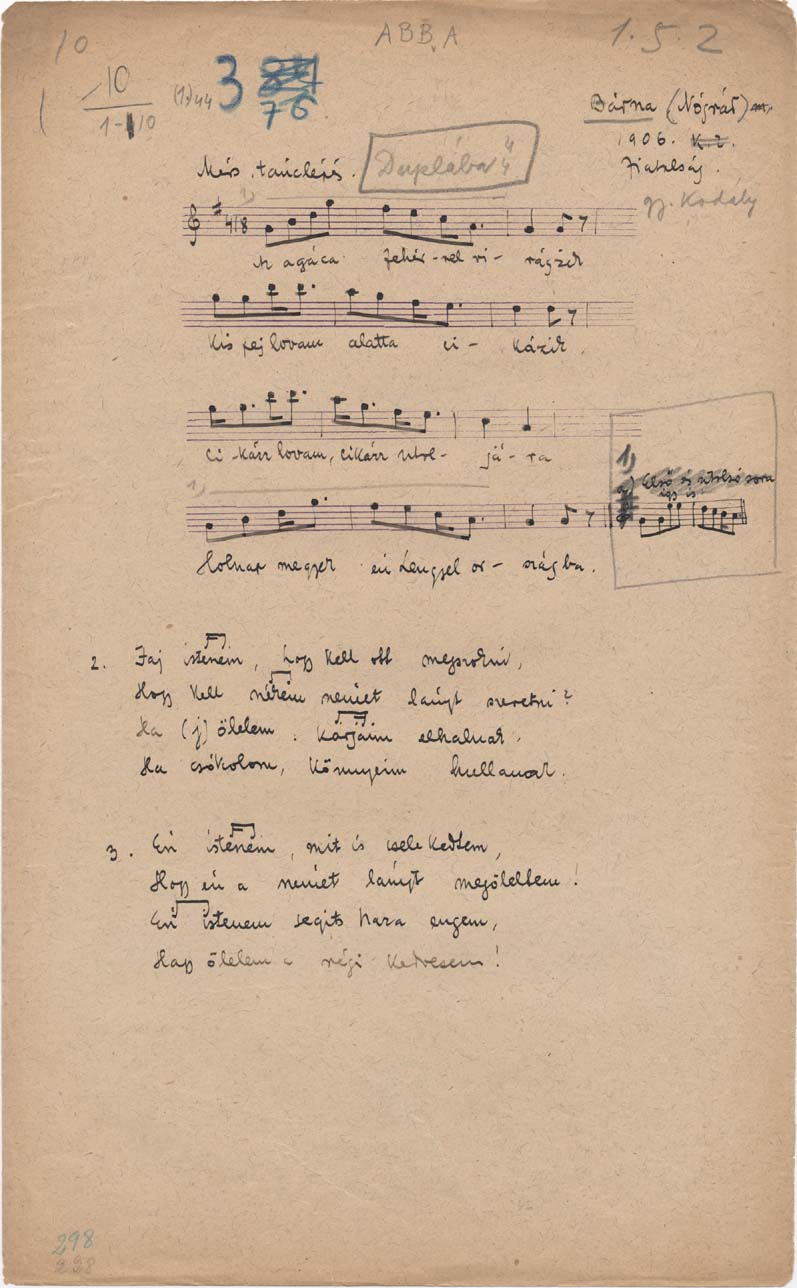 10
ABB.A
1.5.2
10
1-10
(1.)44
3
76
Bárna (Nógrád) m.
1906. K.2.
Fiatalság.
gy. Kodály
Mérs. tánclépés.
Duplába 4/4
1)
4/8
Az agáca fehér-rel vi- rágzik
Kis pej lovam alatta ci- kázik,
Ci-kázz lovam, cikázz utol- já-ra
1)
Holnap megyek én Lengyel or- szágba.
1)
a) Első és utolsó sora
így is
2. Jaj istenem, hogy kell ott megszokni,
Hogy kell nékem német lányt szeretni?
Ha (j) ölelem, karjaim elhalnak,
Ha csókolom, könnyeim hullanak.
3. Én istenem, mit is cselekedtem,
Hogy én a német lányt megöleltem!
Én istenem segits haza engem,
Hagy ölelem a régi kedvesem!
298
228